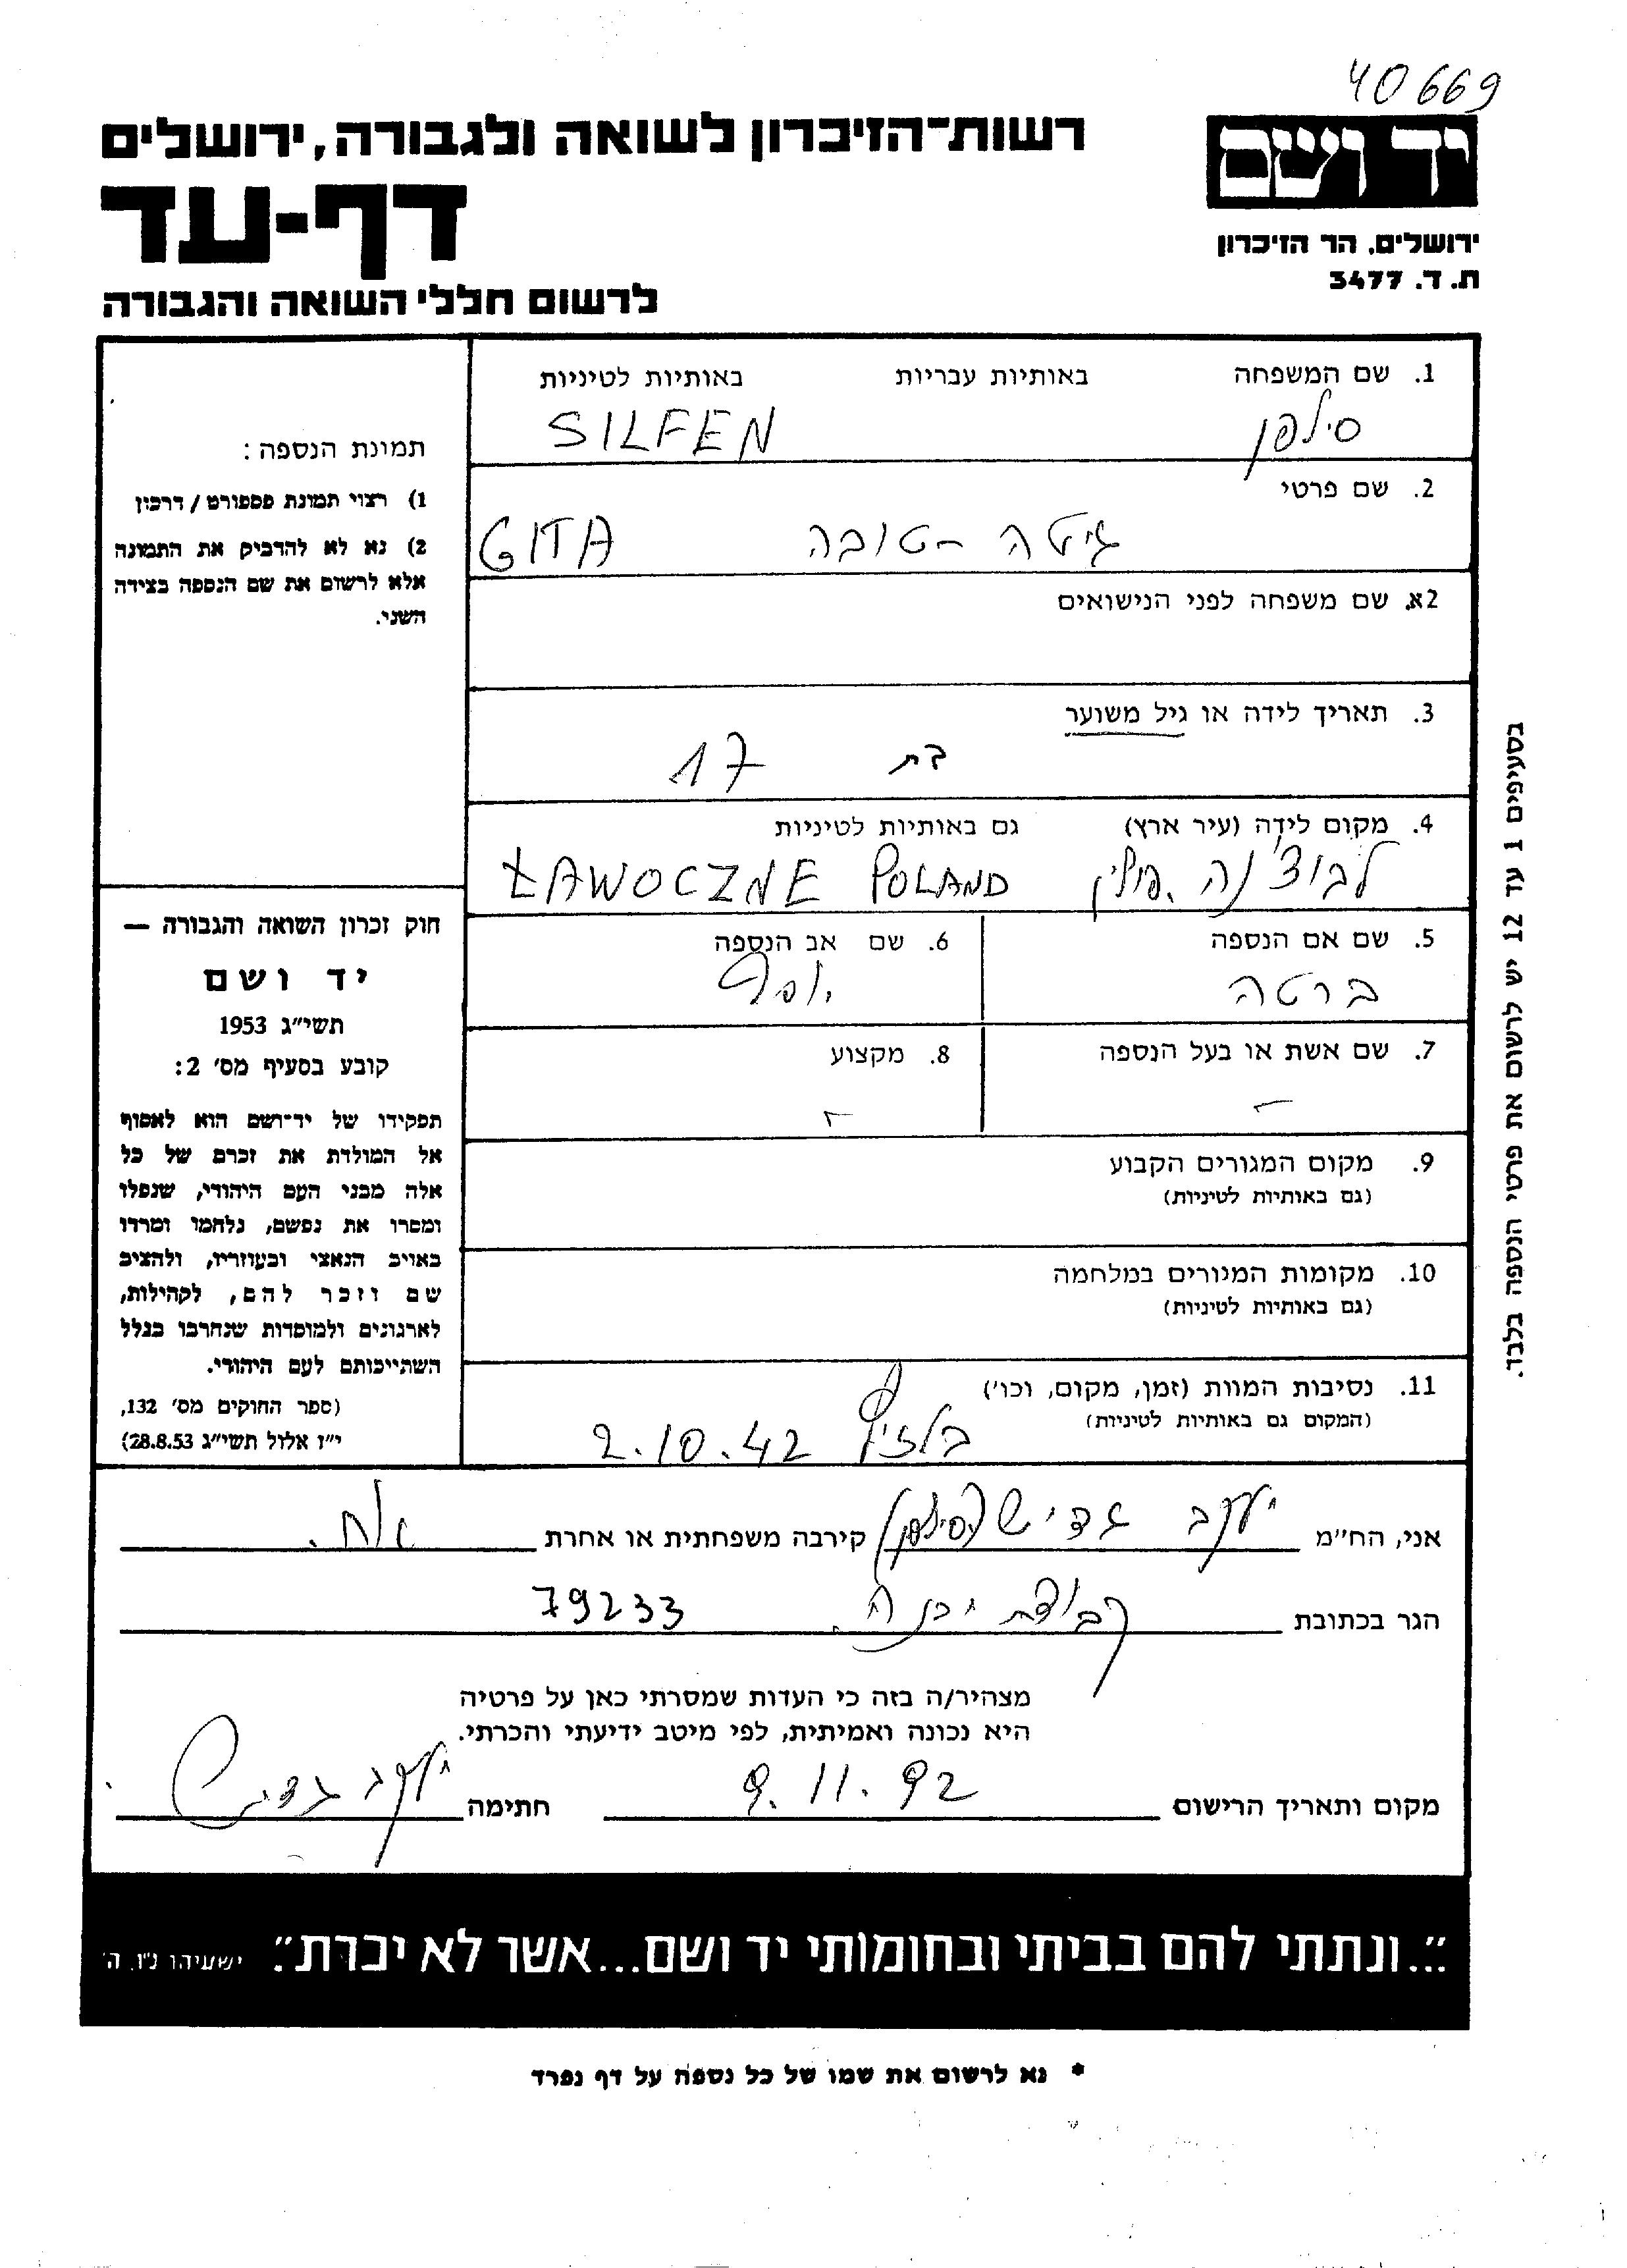 40669
יד ושם
ירושלים, הר הזיכרון
ת. ד. 3477
רשות-הזיכרון לשואה ולגבורה, ירושלים
דף-עד
לרשום חללי השואה והגבורה
1. שם המשפחה באותיות עבריות באותיות לטיניות
סילפן SILFEN
2. שם פרטי
גיטה - טובה GITA
2א. שם משפחה לפני הנישואים
3. תאריך לידה או גיל משוער
בת 17
4. מקום לידה (עיר ארץ) גם באותיות לטיניות
לבוצ'נה פולין ŁAWOCZNE POLAND
5. שם אם הנספה
ברטה
6. שם אב הנספה
יוסף
7. שם אשת או בעל הנספה
-
8. מקצוע
-
9. מקום המגורים הקבוע
(גם באותיות לטיניות)
10. מקומות המגורים במלחמה
(גם באותיות לטיניות)
11. נסיבות המוות (זמן, מקום, וכו')
(המקום גם באותיות לטיניות)
2.10.42
תמונת הנספה:
1) רצוי תמונת פספורט / דרכון
2) נא לא להדביק את התמונה
אלא לרשום את שם הנספה בצידה
השני.
חוק זכרון השואה והגבורה —
יד ושם
תשי"ג 1953
קובע בסעיף מס' 2:
תפקידו של יד-ושם הוא לאסוף
אל המולדת את זכרם של כל
אלה מבני העם היהודי, שנפלו
ומסרו את נפשם, נלחמו ומרדו
באויב הנאצי ובעוזריו, ולהציב
שם וזכר להם, לקהילות,
לארגונים ולמוסדות שנחרבו בגלל
השתייכותם לעם היהודי.
(ספר החוקים מס' 132,
י"ז אלול תשי"ג 28.8.53)
בסעיפים 1 עד 12 יש לרשום את פרטי הנספה בלבד.
אני, הח"מ יעקב גדיש (סילפן) קירבה משפחתית או אחרת אח.
הגר בכתובת קבוצת יבנה. 79233
מצהיר/ה בזה כי העדות שמסרתי כאן על פרטיה
היא נכונה ואמיתית, לפי מיטב ידיעתי והכרתי.
מקום ותאריך הרישום 9.11.92 חתימה יעקב גדיש
"...ונתתי להם בביתי ובחומותי יד ושם...אשר לא יכרת". ישעיהו נ"ו, ה'
* נא לרשום את שמו של כל נספה על דף נפרד